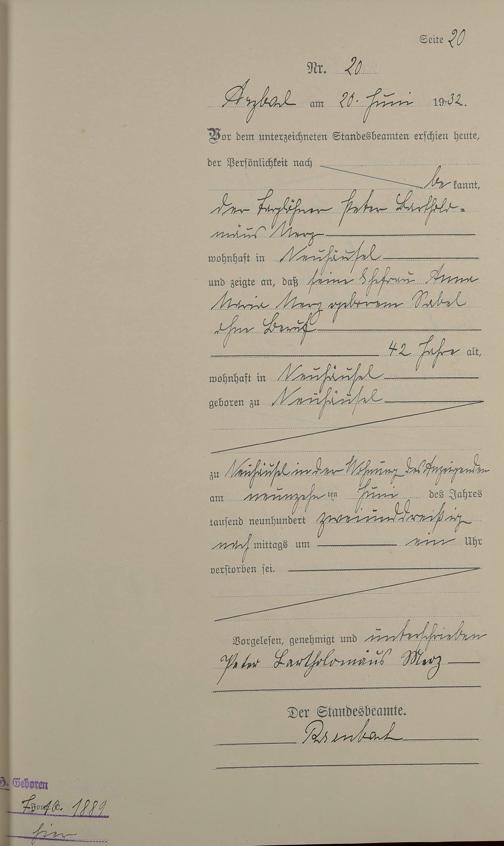 Seite 20
Nr. 20
Arzbach am 20. Juni 1932.
Vor dem unterzeichneten Standesbeamten erschien heute,
der Persönlichkeit nach
be kannt,
der Taglöhner Peter Barthold-
mäus Merz
wohnhaft in Neuhäusel
und zeigte an, daß seine Ehefrau Anna
Maria Merz geborene Sabel
ohne Beruf
42 Jahre alt,
wohnhaft in Neuhäusel
geboren zu Neuhäusel
zu Neuhäusel in der Wohnung des Anzeigenden
am neunzehn ten Juni des Jahres
tausend neunhundert zweiunddreißig
nach mittags um ein Uhr
verstorben sei.
Vorgelesen, genehmigt und unterschrieben
Peter Bartholomäus Merz
Der Standesbeamte.
Geboren
1889
hier